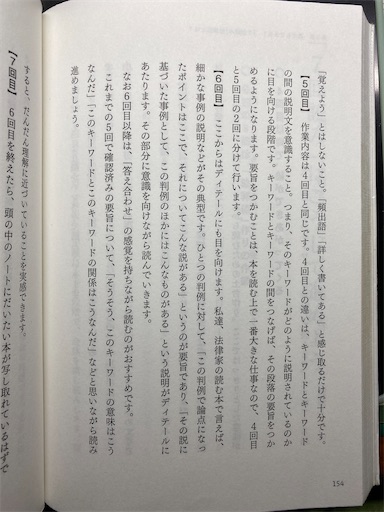 「覚えよう」とはしないこと。「頻出語」「詳しく書いてある」と感じ取るだけで十分です。
【5回目】 作業内容は4回目と同じです。4回目との違いは、キーワードとキーワード
の間の説明文を意識すること。つまり、そのキーワードがどのように説明されているのか
に目を向ける段階です。キーワードとキーワードの間をつなげば、その段落の要旨をつか
めるようになります。要旨をつかむことは、本を読む上で一番大きな仕事なので、4回目
と5回目の2回に分けて行います。
【6回目】 ここからはディテールにも目を向けます。私達、法律家の読む本で言えば、
細かな事例の説明などがその典型です。ひとつの判例に対して、「この判例で論点になっ
たポイントはここで、それについてこんな説がある」というのが要旨であり、「その説に
基づいた事例として、この判例のほかにはこんなものがある」という説明がディテールに
あたります。その部分に意識を向けながら読んでいきます。
なお6回目以降は、「答え合わせ」の感覚を持ちながら読むのがおすすめです。
これまでの5回で確認済みの要旨について、「そうそう、このキーワードの意味はこう
なんだ」「このキーワードとこのキーワードの関係はこうなんだ」などと思いながら読み
進めましょう。
すると、だんだん理解に近づいていることを実感できます。
【7回目】 6回目を終えたら、頭の中のノートにだいたい本が写し取れているはずで
154